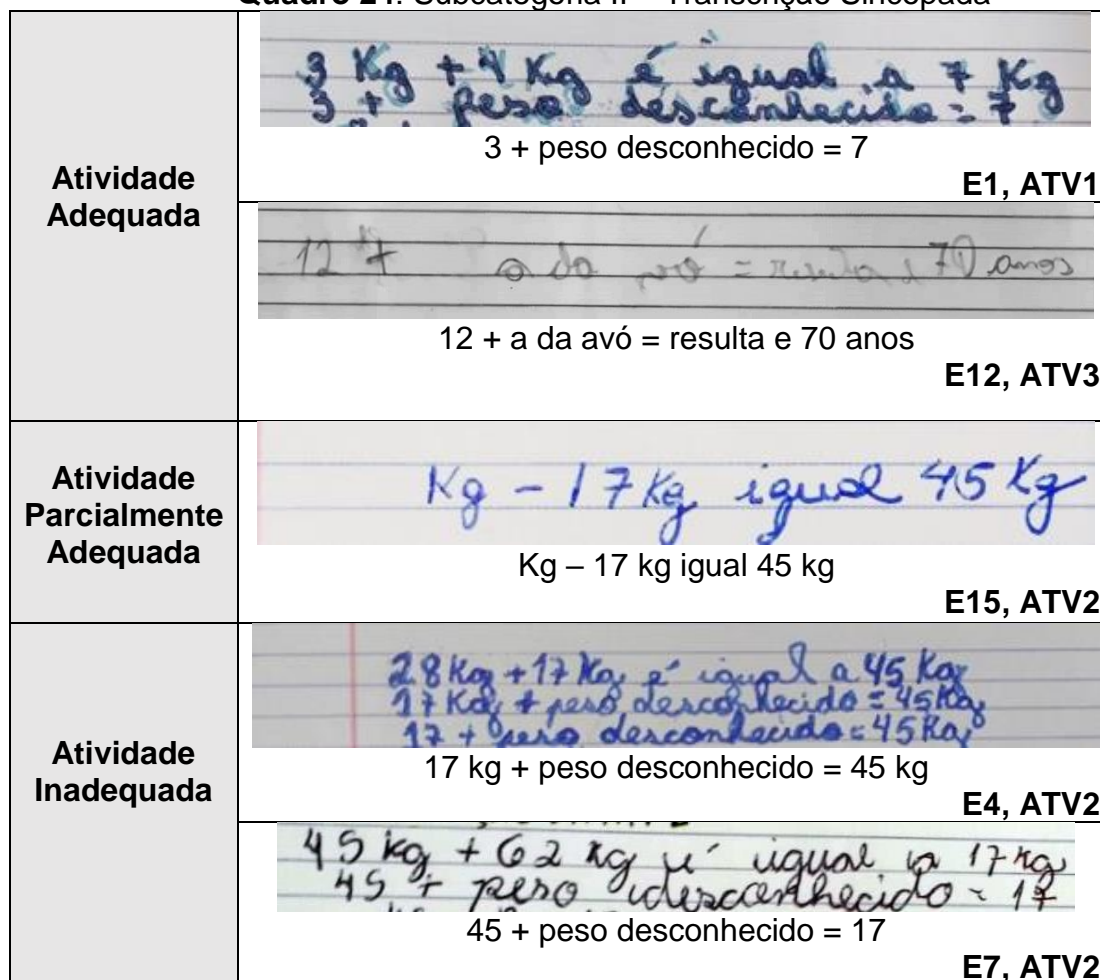 Quadro 24: Subcategoria II – Transcrição Sincopada
Atividade
Adequada
3 Kg + 4 Kg é igual a 7 Kg
3 + peso desconhecido = 7
3 + peso desconhecido = 7
E1, ATV1
12 + a da avó = resulta e 70 anos
12 + a da avó = resulta e 70 anos
E12, ATV3
Atividade
Parcialmente
Adequada
Kg – 17 Kg igual 45 Kg
Kg – 17 kg igual 45 kg
E15, ATV2
Atividade
Inadequada
28 Kg + 17 Kg é igual a 45 Kg
17 Kg + peso desconhecido = 45 Kg
17 + peso desconhecido = 45 Kg
17 kg + peso desconhecido = 45 kg
E4, ATV2
45 kg + 62 kg é igual a 17 kg
45 + peso desconhecido = 17
45 + peso desconhecido = 17
E7, ATV2